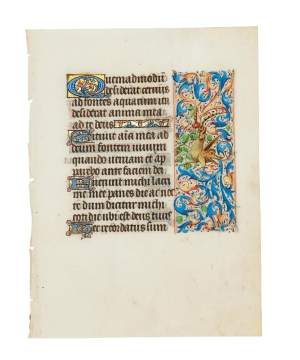 Quemadmodū
desiderat cervus
ad fontes aquarum ita
desiderat anima mea
ad te deus
Sitivit aīa mea ad
deum fontem vivum
quando veniam et ap
parebo ante faciem dei
Fuerunt michi lacri
me mee panes die ac noc
te dum dicitur michi
cotidie ubi est deus tuus
Hec recordatus sum